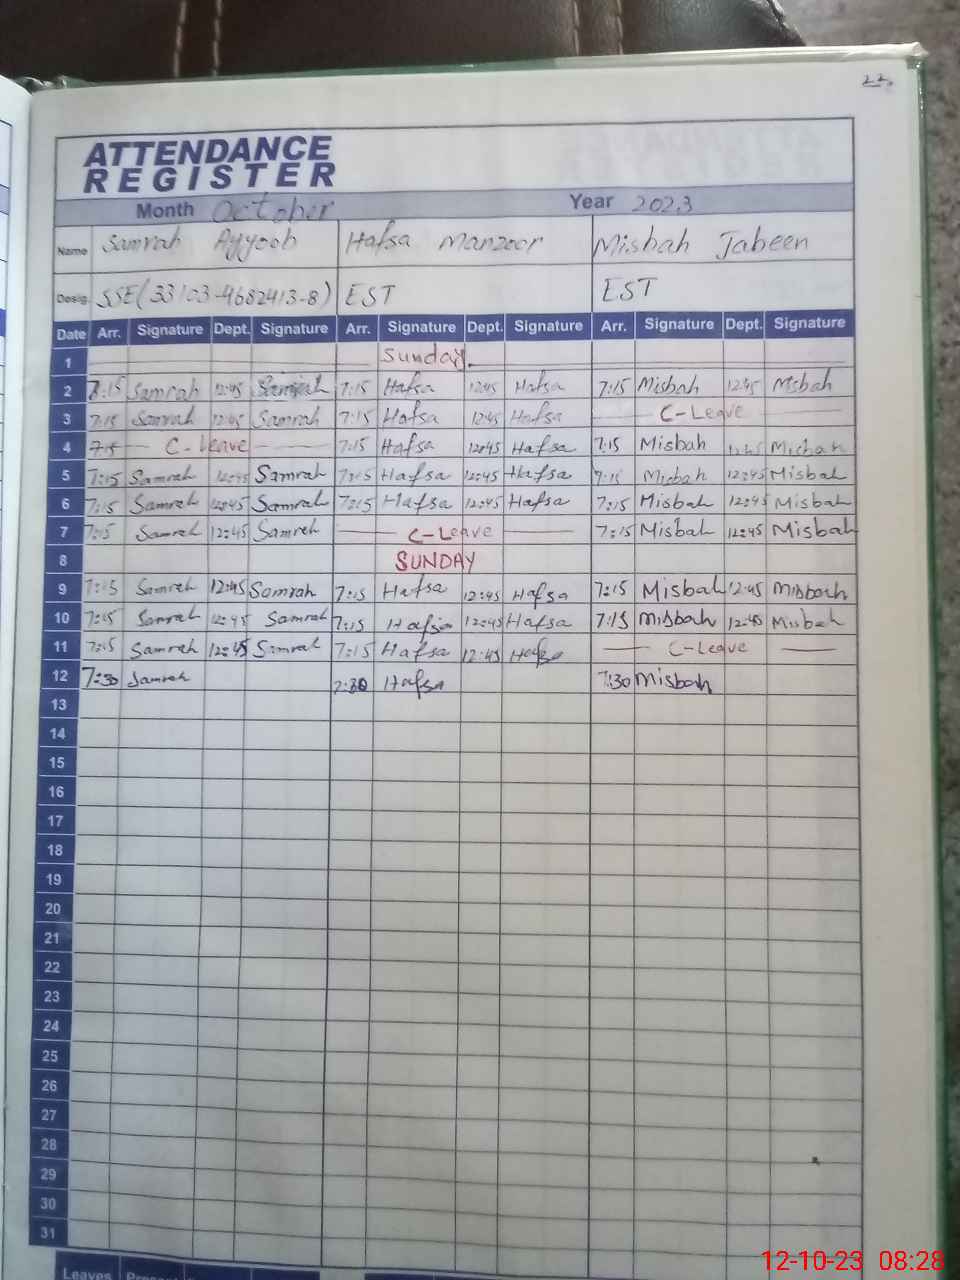 22.
ATTENDANCE
REGISTER
Month October Year 2023
Name Samrah Ayyoob Hafsa Manzoor Misbah Jabeen
Desig. SSE(33103-4682413-8) EST EST
Date Arr. Signature Dept. Signature Arr. Signature Dept. Signature Arr. Signature Dept. Signature
1 Sunday.
2 7:15 Samrah 12:45 Samrah 7:15 Hafsa 12:45 Hafsa 7:15 Misbah 12:45 Misbah
3 7:15 Samrah 12:45 Samrah 7:15 Hafsa 12:45 Hafsa C-Leave
4 C-Leave 7:15 Hafsa 12:45 Hafsa 7:15 Misbah 12:45 Misbah
5 7:15 Samrah 12:45 Samrah 7:15 Hafsa 12:45 Hafsa 7:15 Misbah 12:45 Misbah
6 7:15 Samrah 12:45 Samrah 7:15 Hafsa 12:45 Hafsa 7:15 Misbah 12:45 Misbah
7 7:15 Samrah 12:45 Samrah C-Leave 7:15 Misbah 12:45 Misbah
8 SUNDAY
9 7:15 Samrah 12:45 Samrah 7:15 Hafsa 12:45 Hafsa 7:15 Misbah 12:45 Misbah
10 7:15 Samrah 12:45 Samrah 7:15 Hafsa 12:45 Hafsa 7:15 Misbah 12:45 Misbah
11 7:15 Samrah 12:45 Samrah 7:15 Hafsa 12:45 Hafsa C-Leave
12 7:30 Samrah 7:30 Hafsa 7:30 Misbah
13
14
15
16
17
18
19
20
21
22
23
24
25
26
27
28
29
30
31
Leaves
12-10-23 08:28